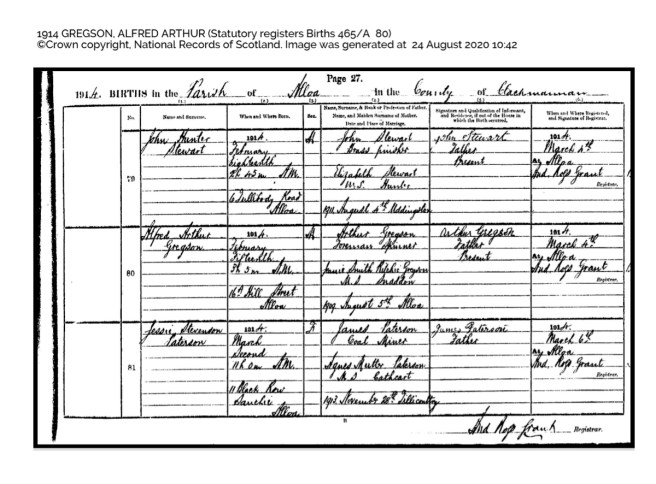 1914 GREGSON, ALFRED ARTHUR (Statutory registers Births 465/A 80)
©Crown copyright, National Records of Scotland. Image was generated at 24 August 2020 10:42
Page 27.
1914. BIRTHS in the Parish of Alloa in the County of Clackmannan
(1.) (2.) (3.) (4.) (5.) (6.)
No. Name and Surname. When and Where Born. Sex. Name, Surname, & Rank or Profession of Father. Name, and Maiden Surname of Mother. Date and Place of Marriage. Signature and Qualification of Informant, and Residence, if out of the House in which the Birth occurred. When and Where Registered, and Signature of Registrar.
79
John Hunter
Stewart
1914.
February
Eighteenth
2h. 45m A.M.
6 Tullibody Road
Alloa
M
John Stewart
Brass finisher
Elizabeth Stewart
M.S. Hunter
1911 August 4th Uddingston
John Stewart
Father
Present
1914.
March 4th
At Alloa
And. Ross Grant
Registrar.
80
Alfred Arthur
Gregson
1914.
February
Fifteenth
5h. 5m. A.M.
Hill Street
Alloa
M
Arthur Gregson
Foreman Spinner
Janie Smith Ritchie Gregson
M.S. Snaddon
1909 August 5th Alloa
Arthur Gregson
Father
Present
1914.
March 4th
At Alloa
And. Ross Grant
Registrar.
81
Jessie Stevenson
Paterson
1914.
March
Second
11h. 0m A.M.
11 Black Row
Sauchie
Alloa
F
James Paterson
Coal Miner
Agnes Paterson
M.S. Cathcart
1912 November Tillicoultry
James Paterson
Father
1914.
March 6th
At Alloa
And. Ross Grant
Registrar.
And Ross Grant Registrar.